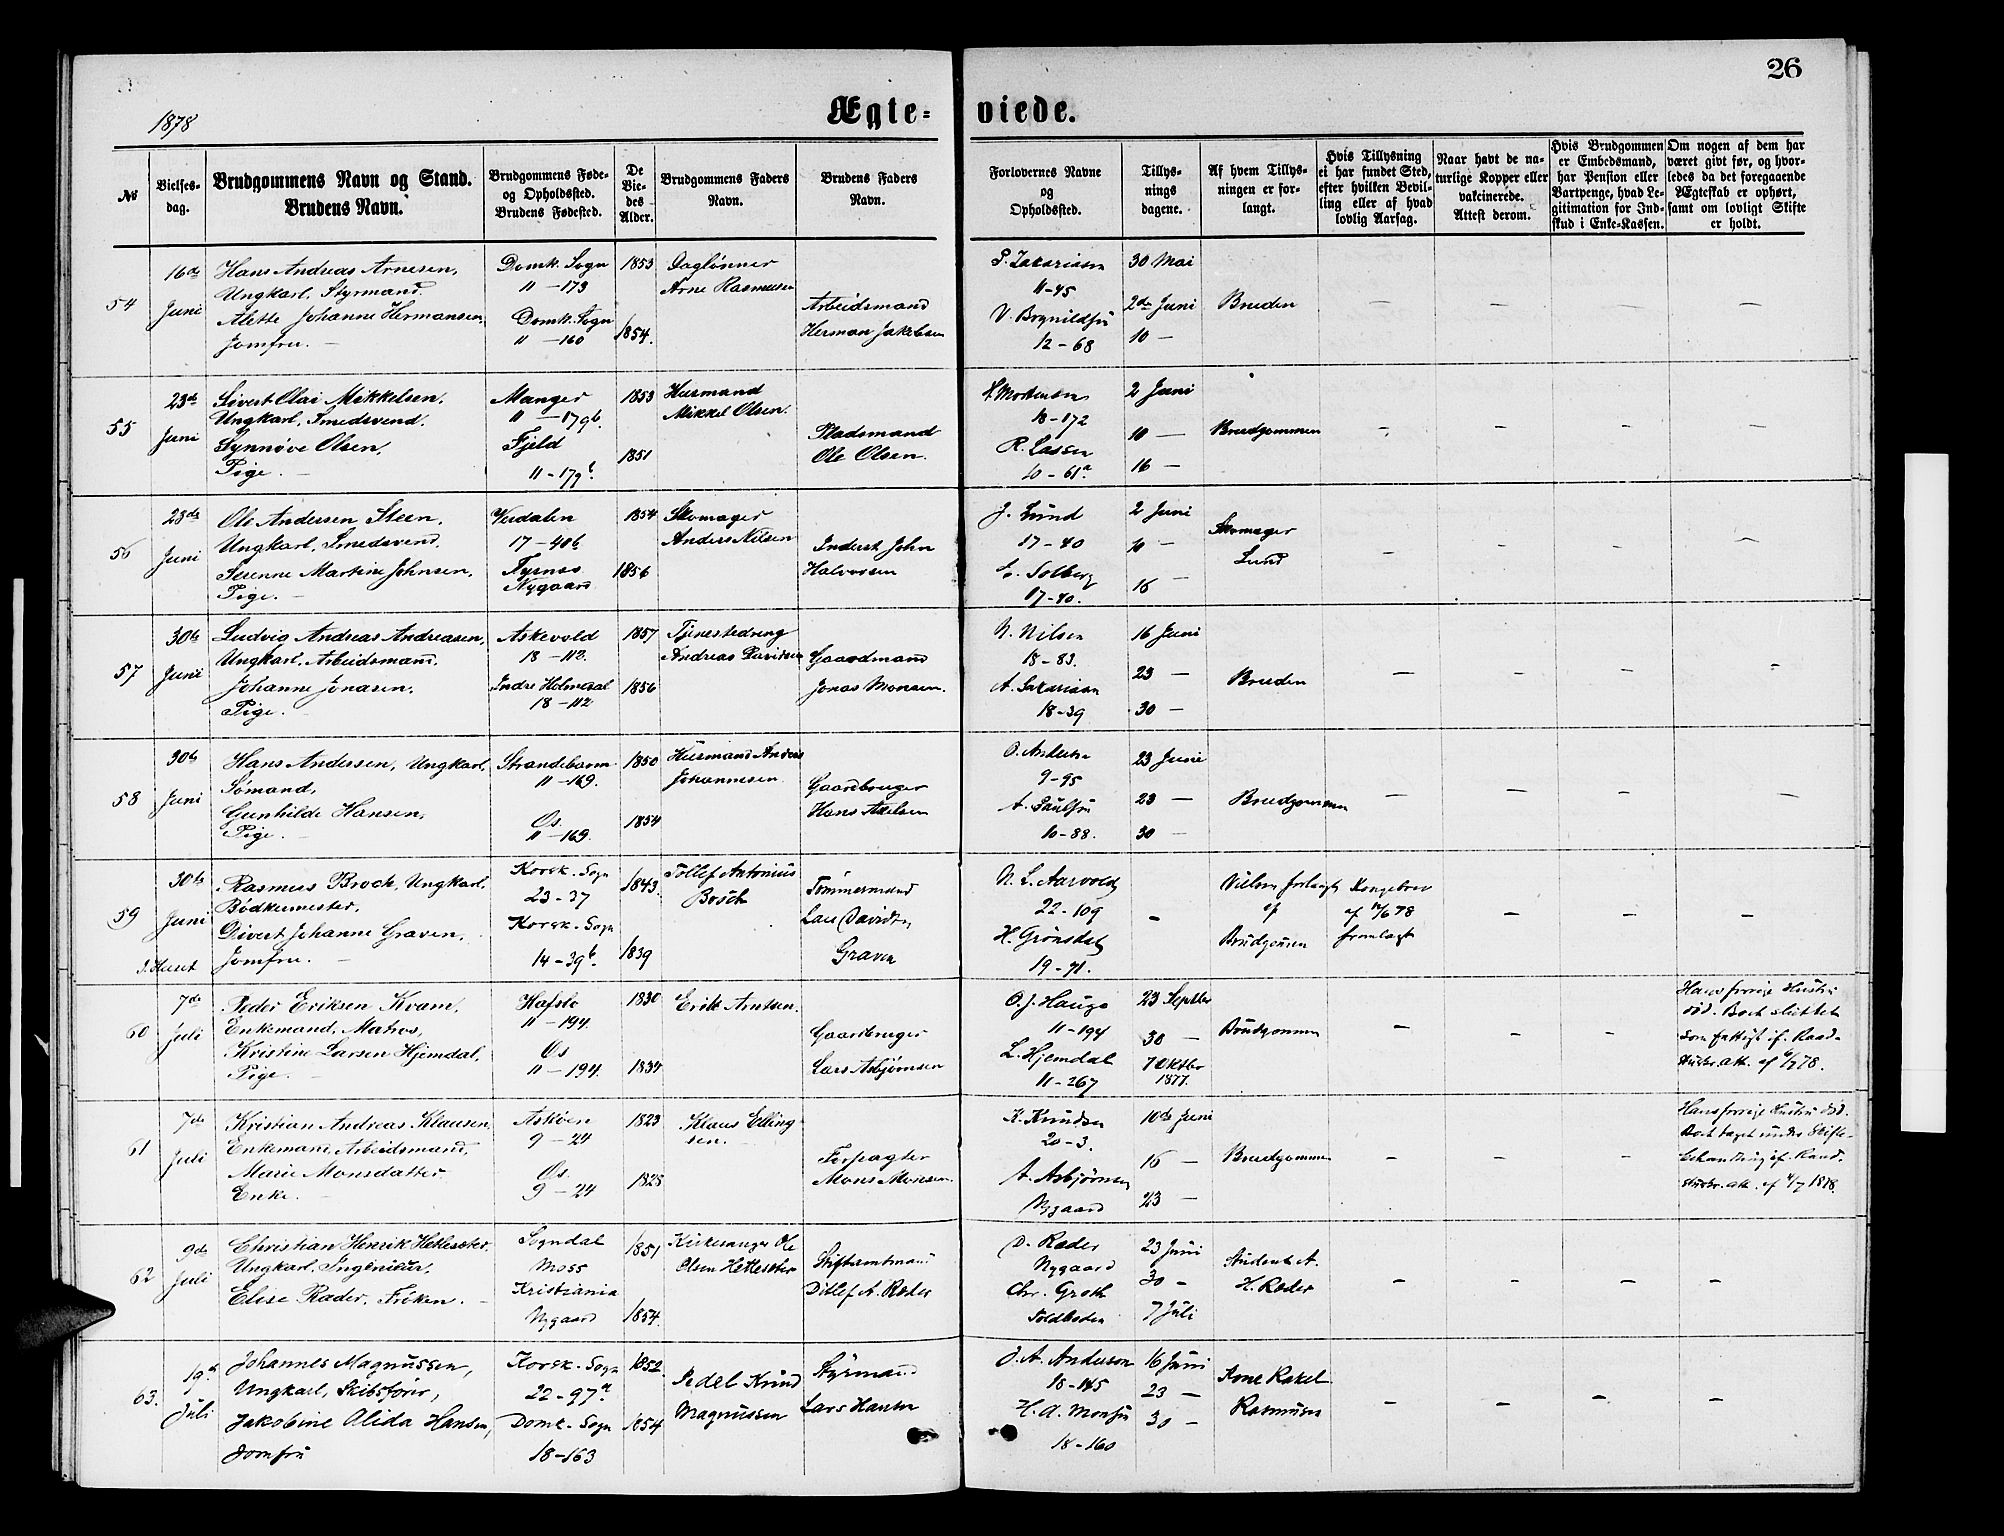 26
1878
Ægte-viede.
№
Vielses-dag.
Brudgommens Navn og Stand.
Brudens Navn.
Brudgommens Føde- og Opholdssted.
Brudens Fødested.
De Vie-des Alder.
Brudgommens Faders Navn.
Brudens Faders Navn.
Forlovernes Navne og Opholdssted.
Tillys-nings dagene.
Af hvem Tillys-ningen er for-langt.
Hvis Tillysning ei har fundet Sted, efter hvilken Bevil-ling eller af hvad lovlig Aarsag.
Naar havt de na-turlige Kopper eller vakcinerede. Attest derom.
Hvis Brudgommen er Embedsmand, har Pension eller Vartpenge, hvad Le-gitimation for Ind-skud i Enke-Kassen.
Om nogen af dem har været givt før, og hvor-ledes da det foregaaende Ægteskab er ophørt, samt om lovligt Skifte er holdt.
54
16de Juni
Hans Andreas Arnesen,
Ungkarl, Styrmand.
Alette Johanne Hermansen,
Jomfru. —
Domk. Sogn
11 - 173
Domk. Sogn
11 - 160
1853
1854.
Daglønner
Arne Rasmussen
Arbeidsmand
Herman Jakobsen
P. Zakariasen
11-45
12-68
30 Mai
2de Juni
10 —
Bruden
55
23de Juni
Sivert Olai Mikkelsen,
Ungkarl, Smedsvend.
Synnøve Olsen,
Pige. —
Manger
11 - 179b
Fjeld
11 - 179b
1853
1851
Husmand
Mikkel Olsen.
Pladsmand
Ole Olsen.
18-172
R. Lassen
10-61a
2 Juni
10 —
16 —
Brudgommen
56
23de Juni
Ole Andersen Steen,
Ungkarl, Smedsvend,
Serenne Martine Johnsen,
Pige. —
Verdalen
17-40b
Nygaard
1854
1856
Skomager
Anders Nilsen
Inderst John
Halvorsen
J. Lund
17-40
E. Solberg
17-40.
2 Juni
10 —
16 —
Skomager
Lund
57
30te Juni
Ludvig Andreas Andreasen,
Ungkarl, Arbeidsmand.
Johanne Jonasen,
Pige. —
Askevold
18-112.
Indre Holmedal
18-112
1857
1856
Tjenestedreng
Andreas Davidsen
Gaardmand
Jonas Monsen.
N. Nilsen
18-83.
A. Zakariasen
18-39
16 Juni
23 —
30 —
Bruden
58
30te Juni
Hans Andersen, Ungkarl,
Sømand,
Gunhilde Hansen,
Pige. —
Strandebarm
11-169.
Os.
11-169.
1850
1854
Husmand Anders
Johannesen
Gaardbruger
Hans Axelsen
9-95
10-88.
23 Juni
23 —
30 —
Brudgommen
59
30te Juni
Rasmus Broch, Ungkarl,
Bødkermester,
Sivert Johanne Graven,
Jomfru. —
Korsk. Sogn
23-37
Korsk. Sogn
14-39b.
1843.
1839
Tollef Antonius
Broch
Tømmermand
Graven
N. L. Aarvold
22-109
H. Grønsdal
19-71.
Vielsen forlangt
af
Brudgommen
Kongebrev
af 12/6 78
fremlagt
60
7de Juli
Peder Eriksen Kvam,
Enkemand, Matros,
Kristine Larsen Hjemdal,
Pige. —
Hafslo
11-194.
Os
11-194.
1830
1834
Erik Arntsen.
Gaardbruger
Lars Asbjørnsen
O. J. Hauge
11-194
L. Hjemdal
11-267
23 Septbr
30 —
7 Oktbr
1877.
Brudgommen
Hans forrige Hustru
død. Boet sluttet
som fattigt if. Raad-
stuskr. att. af 6/7 78.
61
7de Juli
Kristian Andreas Klausen,
Enkemand, Arbeidsmand,
Marie Monsdatter
Enke. —
Askøen
9-24
Os.
9-24
1823
1828
Klaus Elling
sen.
Forpagter
Mons Monsen.
K. Knudsen
20-3.
A. Asbjørnsen
Nygaard
10de Juni
16 —
23 —
Brudgommen
Hans forrige Hustru død.
Boet taget under Skifte-
behandling if. Raad-
stuskr. att. af 4/7 1878.
62
9de Juli
Christian Henrik Hetlesæter
Ungkarl, Ingeniør,
Elise Ræder, Frøken. —
Sogndal
Moss
Kristiania
Nygaard
1851
1854.
Kirkesanger Ole
Olsen Hetlesæter
Stiftsamtmand
Ditlef A. Ræder
D. Ræder
Nygaard
Chr. Groth
Toldboden
23 Juni
30 —
7 Juli
Student A.
H. Ræder
63.
19de Juli
Johannes Magnussen,
Ungkarl, Skibsfører,
Jakobine Olida Hansen,
Jomfru
Korsk. Sogn
22-97a
Domk. Sogn
18-163
1852.
1854
Pedel Knud
Magnussen
Styrmand
Lars Hansen
J. A. Anderson
18-145
H. A. Monsen
18-160
16 Juni
23 —
30 —
Arne Rakel
Rasmussen